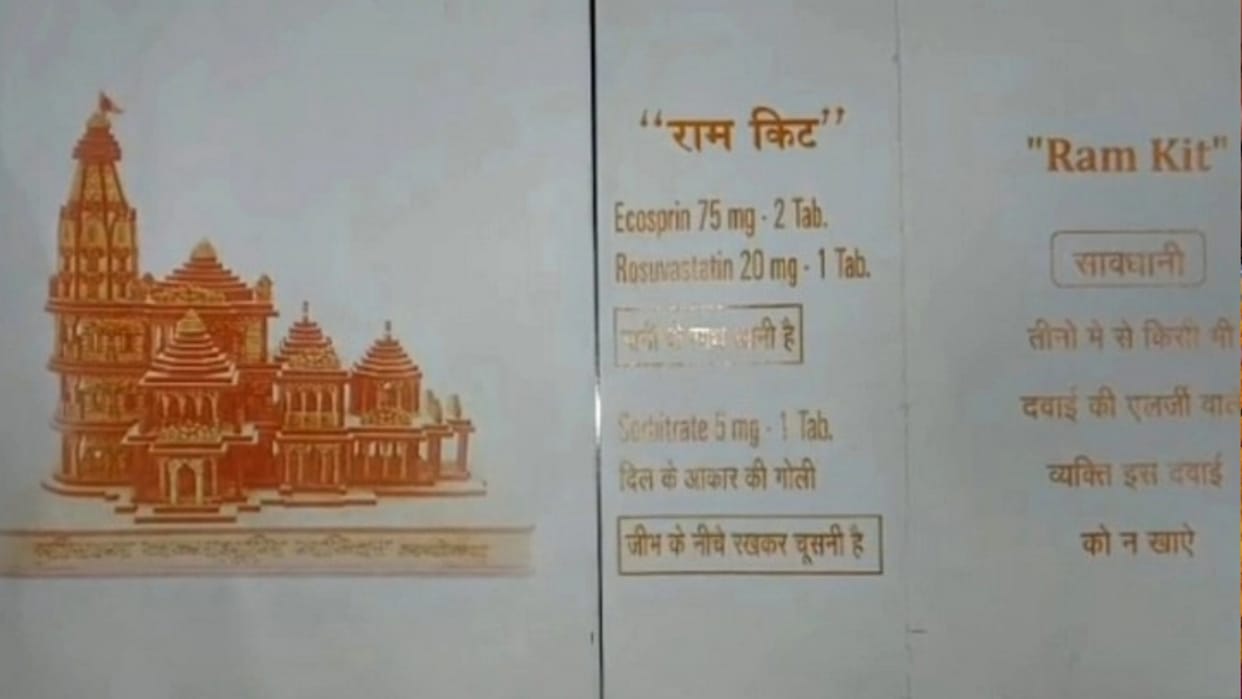 “राम किट”
Ecosprin 75 mg - 2 Tab.
Rosuvastatin 20 mg - 1 Tab.
है
Sorbitrate 5 mg - 1 Tab.
दिल के आकार की गोली
जीभ के नीचे रखकर चूसनी है
"Ram Kit"
सावधानी
तीनो मे से किसी भी
दवाई की एलर्जी वाले
व्यक्ति इस दवाई
को न खाऐ